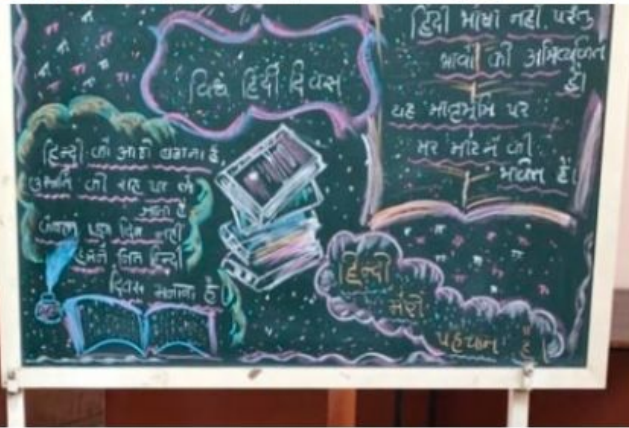 विश्व हिंदी दिवस
हिंदी भाषा नहीं, परंतु
भावों की अभिव्यक्ति
है।
यह मातृभूमि पर
मर मिटने की
भक्ति है।
हिन्दी को आगे बढ़ाना है,
उन्नति की राह पर ले
जाना है
केवल एक दिन नहीं
हमने नित हिन्दी
दिवस मनाना है।
हिन्दी
मेरी
पहचान है।